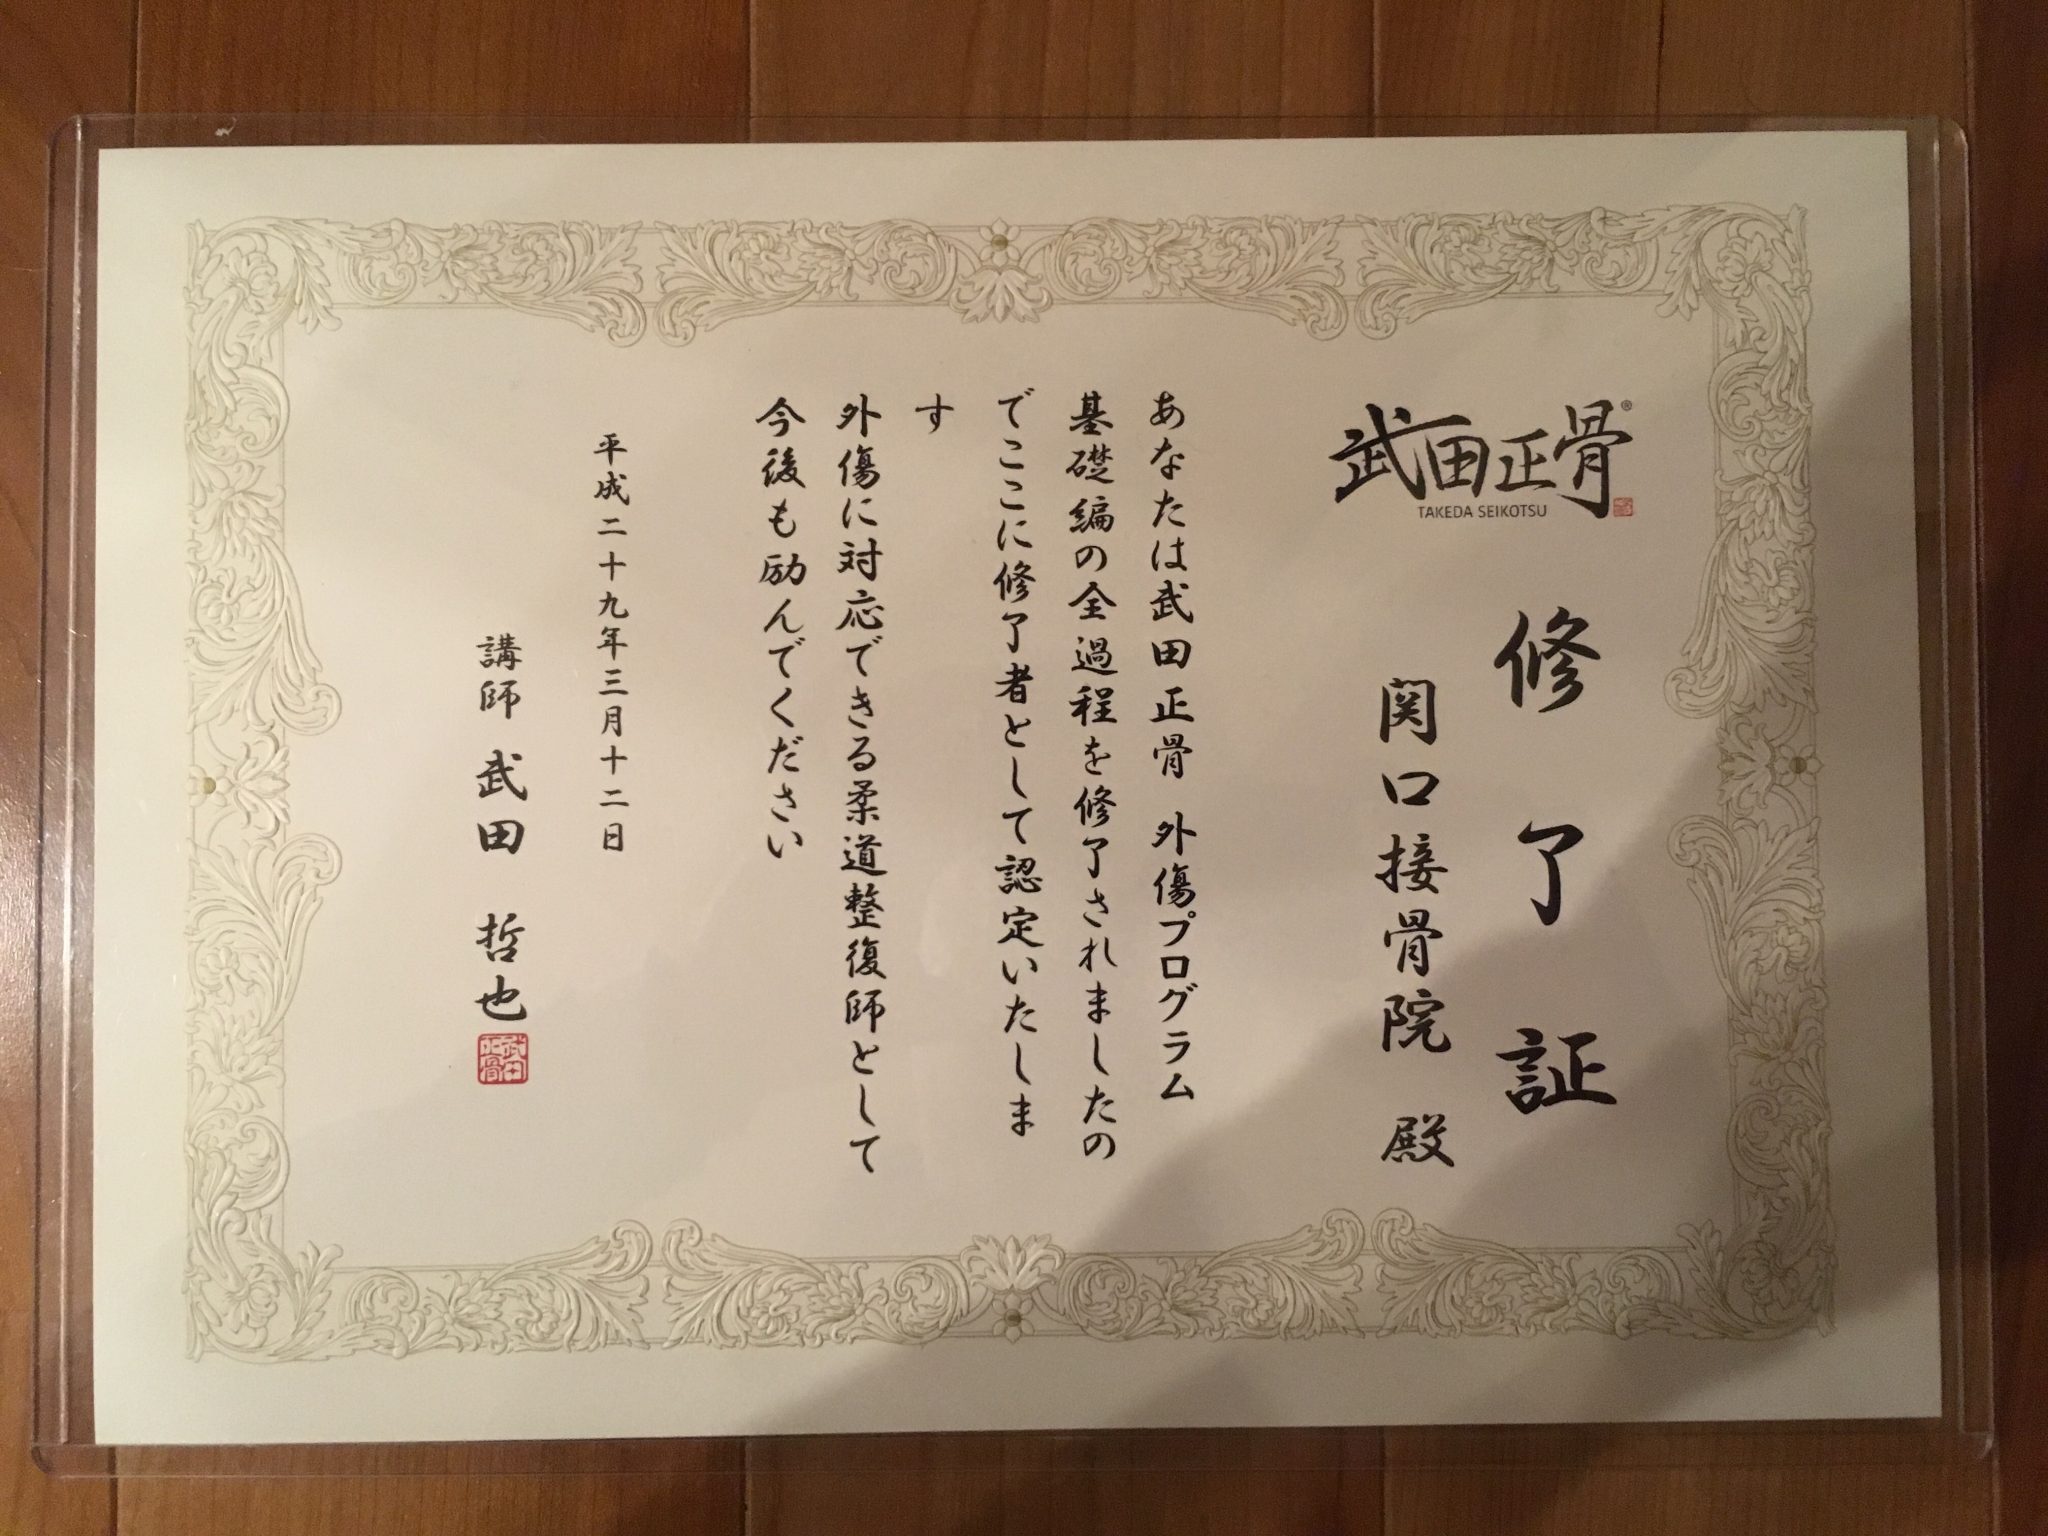 武田正骨®
TAKEDA SEIKOTSU
修了証
関口接骨院 殿
あなたは武田正骨 外傷プログラム
基礎編の全過程を修了されましたの
でここに修了者として認定いたしま
す
外傷に対応できる柔道整復師として
今後も励んでください
平成二十九年三月十二日
講師 武田 哲也
武田
正骨